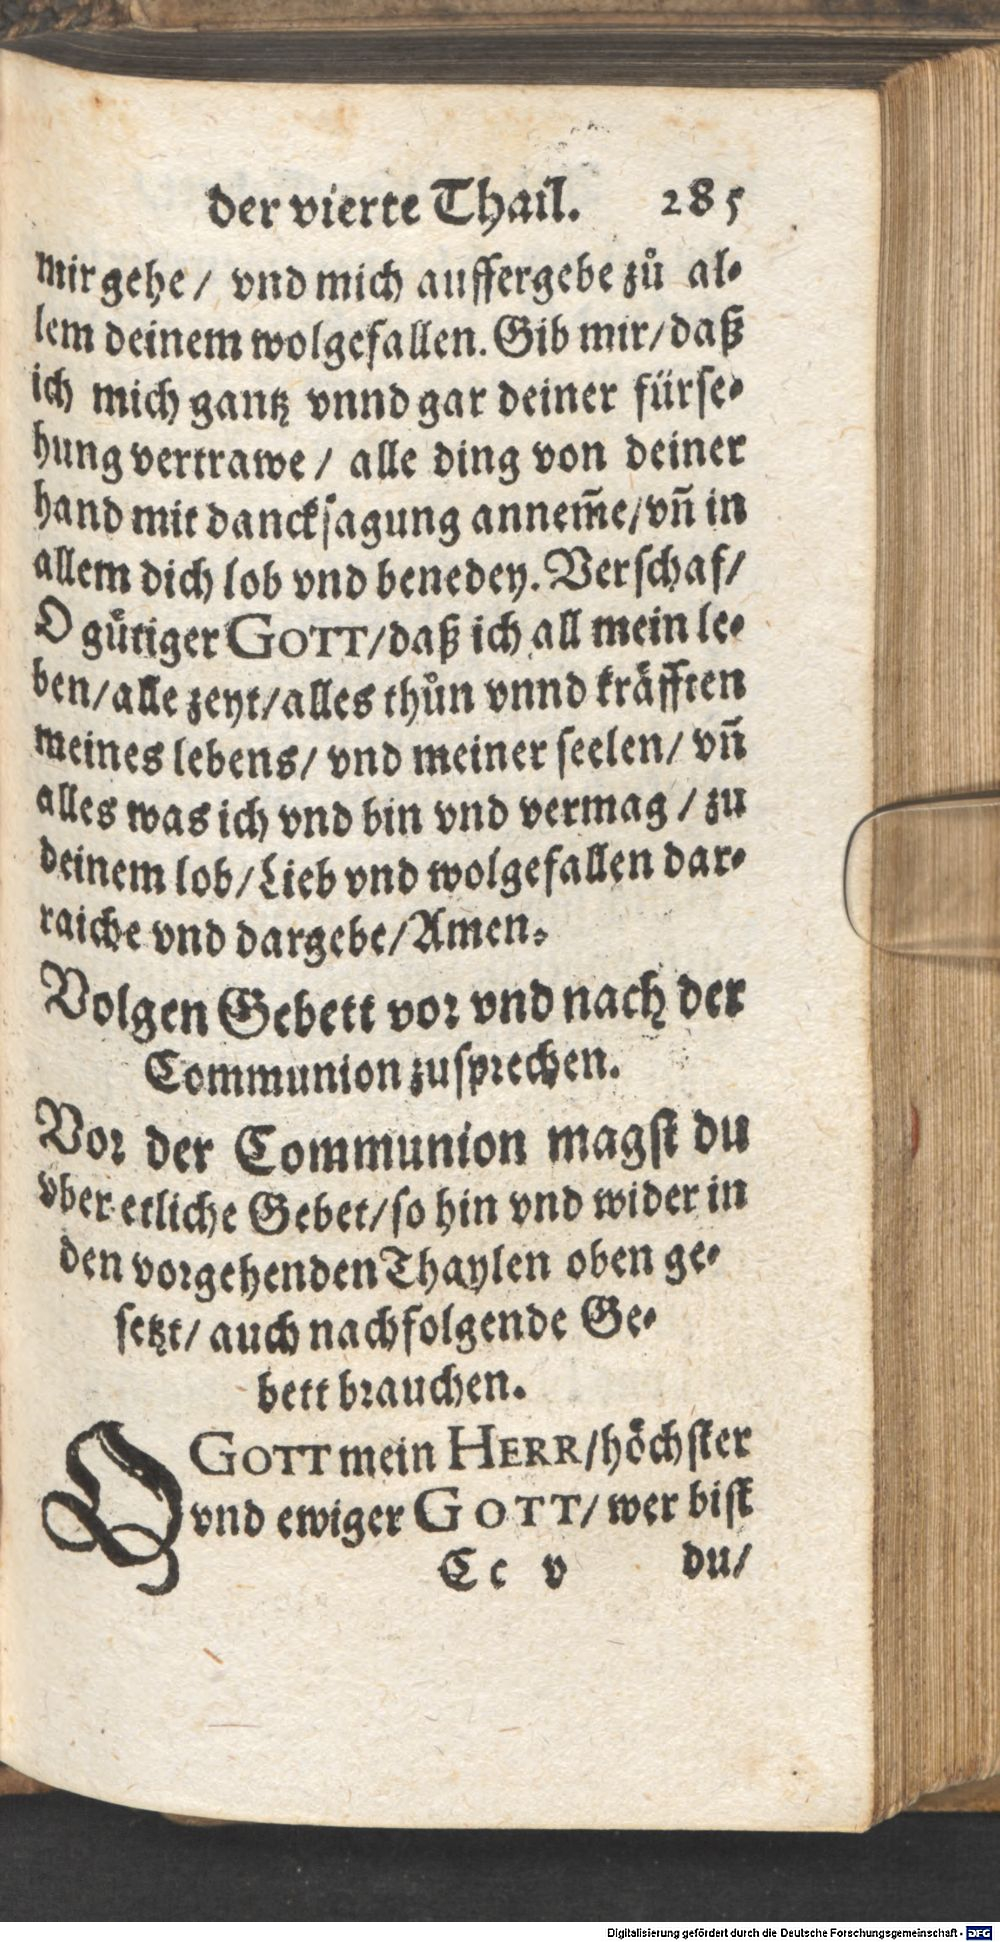 der vierte Thail. 285
mir gehe / vnd mich auffergebe zuͦ al⸗
lem deinem wolgefallen. Gib mir / daß
ich mich gantz vnnd gar deiner fürse⸗
hung vertrawe / alle ding von deiner
hand mit dancksagung annem̃e / vñ in
allem dich lob vnd benedey. Verschaf /
O guͤtiger GOTT / daß ich all mein le⸗
ben / alle zeyt / alles thuͦn vnnd kräfften
meines lebens / vnd meiner seelen / vñ
alles was ich vnd bin vnd vermag / zu
deinem lob / Lieb vnd wolgefallen dar⸗
raiche vnd dargebe / Amen.
Volgen Gebett vor vnd nach der
Communion zusprechen.
Vor der Communion magst du
vber etliche Gebet / so hin vnd wider in
den vorgehenden Thaylen oben ge⸗
setzt / auch nachfolgende Ge⸗
bett brauchen.
O GOTT mein HERR / höchster
vnd ewiger GOTT / wer bist
Cc v du /
Digitalisierung gefördert durch die Deutsche Forschungsgemeinschaft - DFG